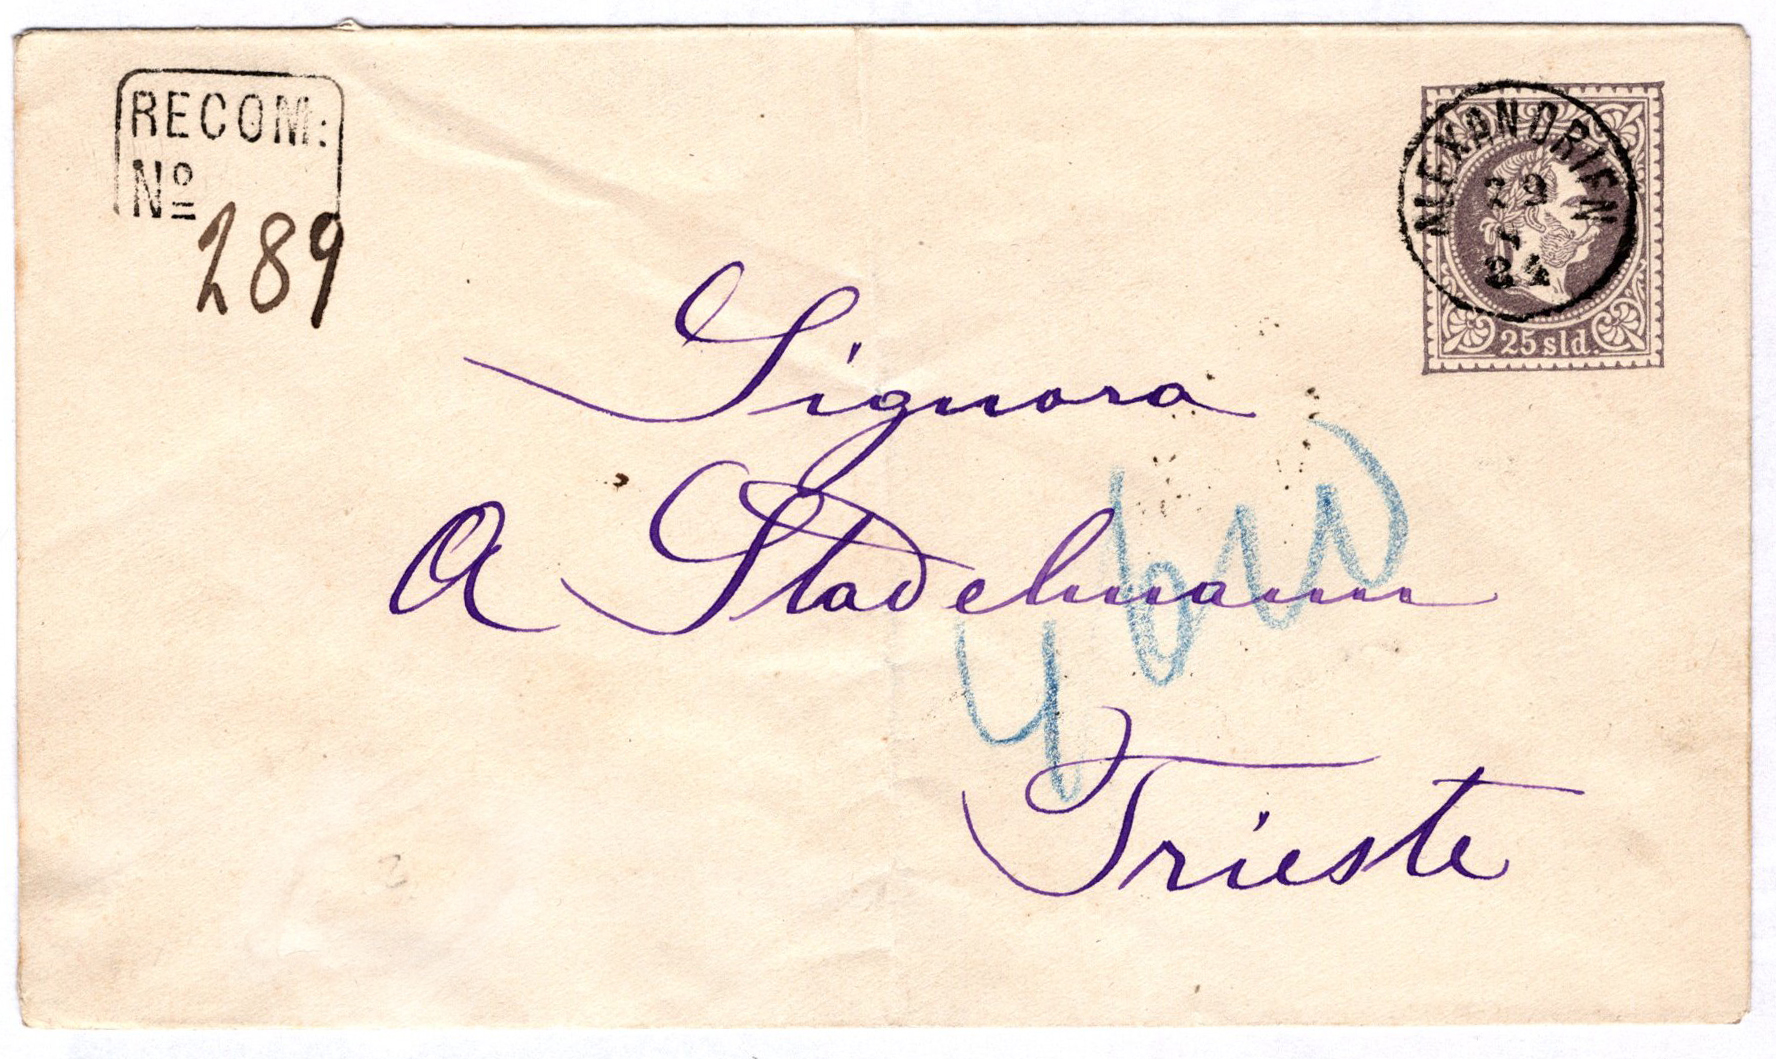 RECOM:
Nº
289
ALEXANDRIEN
25 sld.
Signora
A Stadelmann
Trieste